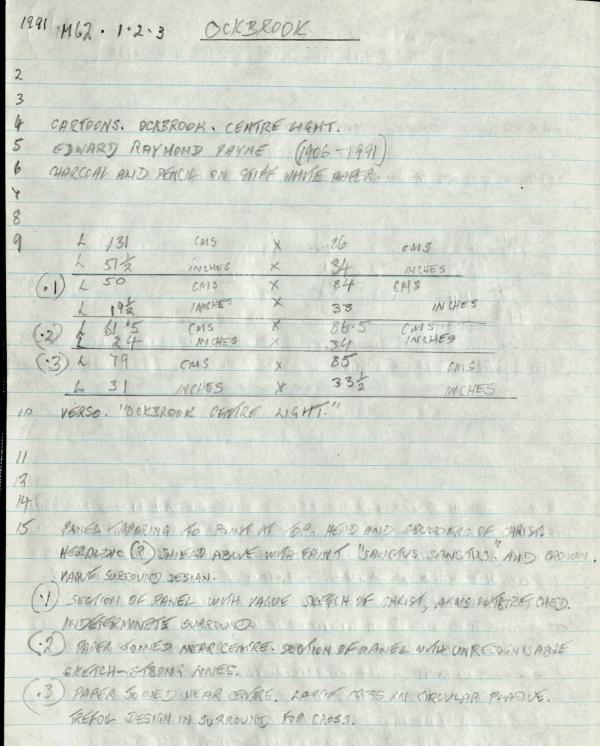 1991 M62 . 1.2.3 OCKBROOK
2
3
4 CARTOONS. OCKBROOK. CENTRE LIGHT.
5 EDWARD RAYMOND PAYNE (1906-1991)
6 CHARCOAL AND PENCIL ON STIFF WHITE PAPER.
7
8
9 L 131 CMS X 86 CMS
L 51½ INCHES X 34 INCHES
(.1) L 50 CMS X 84 CMS
L 19½ INCHES X 33 INCHES
(.2) L 61.5 CMS X 86.5 CMS
L 24 INCHES X 34 INCHES
(.3) L 79 CMS X 85 CMS
L 31 INCHES X 33½ INCHES
10 VERSO. "OCKBROOK CENTRE LIGHT."
11
12
14
15 PANEL TAPERING TO POINT AT TOP. HEAD AND SHOULDERS OF CHRIST.
HERALDIC (?) SHIELD ABOVE WITH FAINT "SANCTUS SANCTUS." AND CROWN.
VAGUE SURROUND DESIGN.
(.1) SECTION OF PANEL WITH VAGUE SKETCH OF CHRIST, ARMS OUTSTRETCHED.
INDETERMINATE SURROUND
(.2) PAPER JOINED NEAR CENTRE. SECTION OF PANEL WITH UNRECOGNISABLE
SKETCH-STRONG LINES.
(.3) PAPER JOINED NEAR CENTRE. LARGE CROSS IN CIRCULAR PLAQUE.
TREFOIL DESIGN IN SURROUND FOR CROSS.